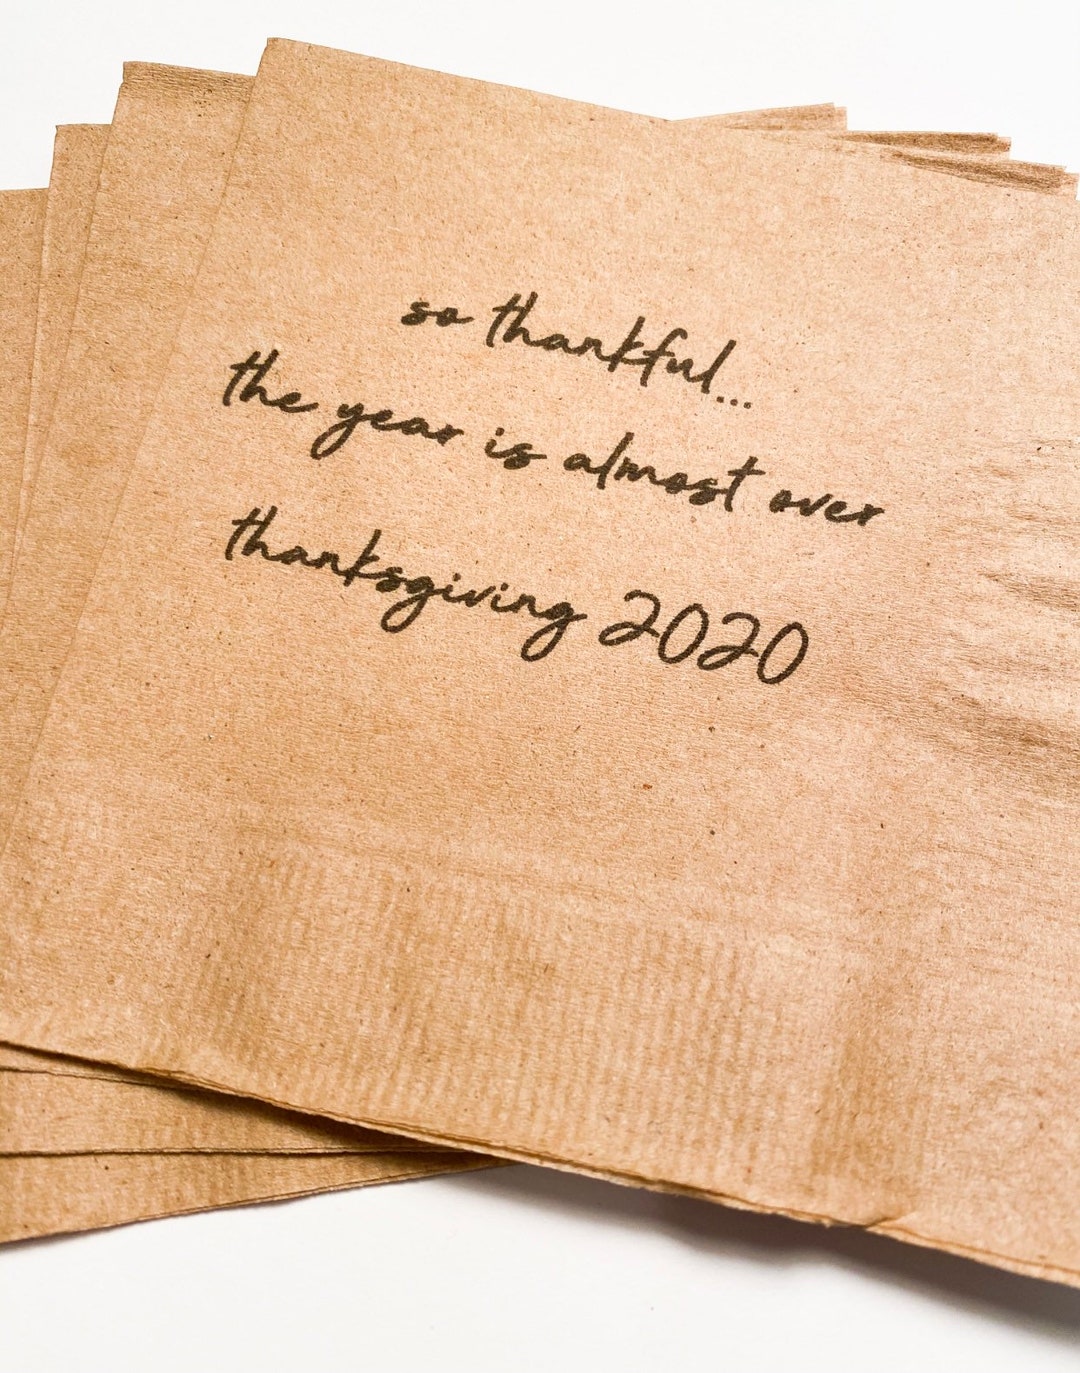 so thankful...
the year is almost over
thanksgiving 2020